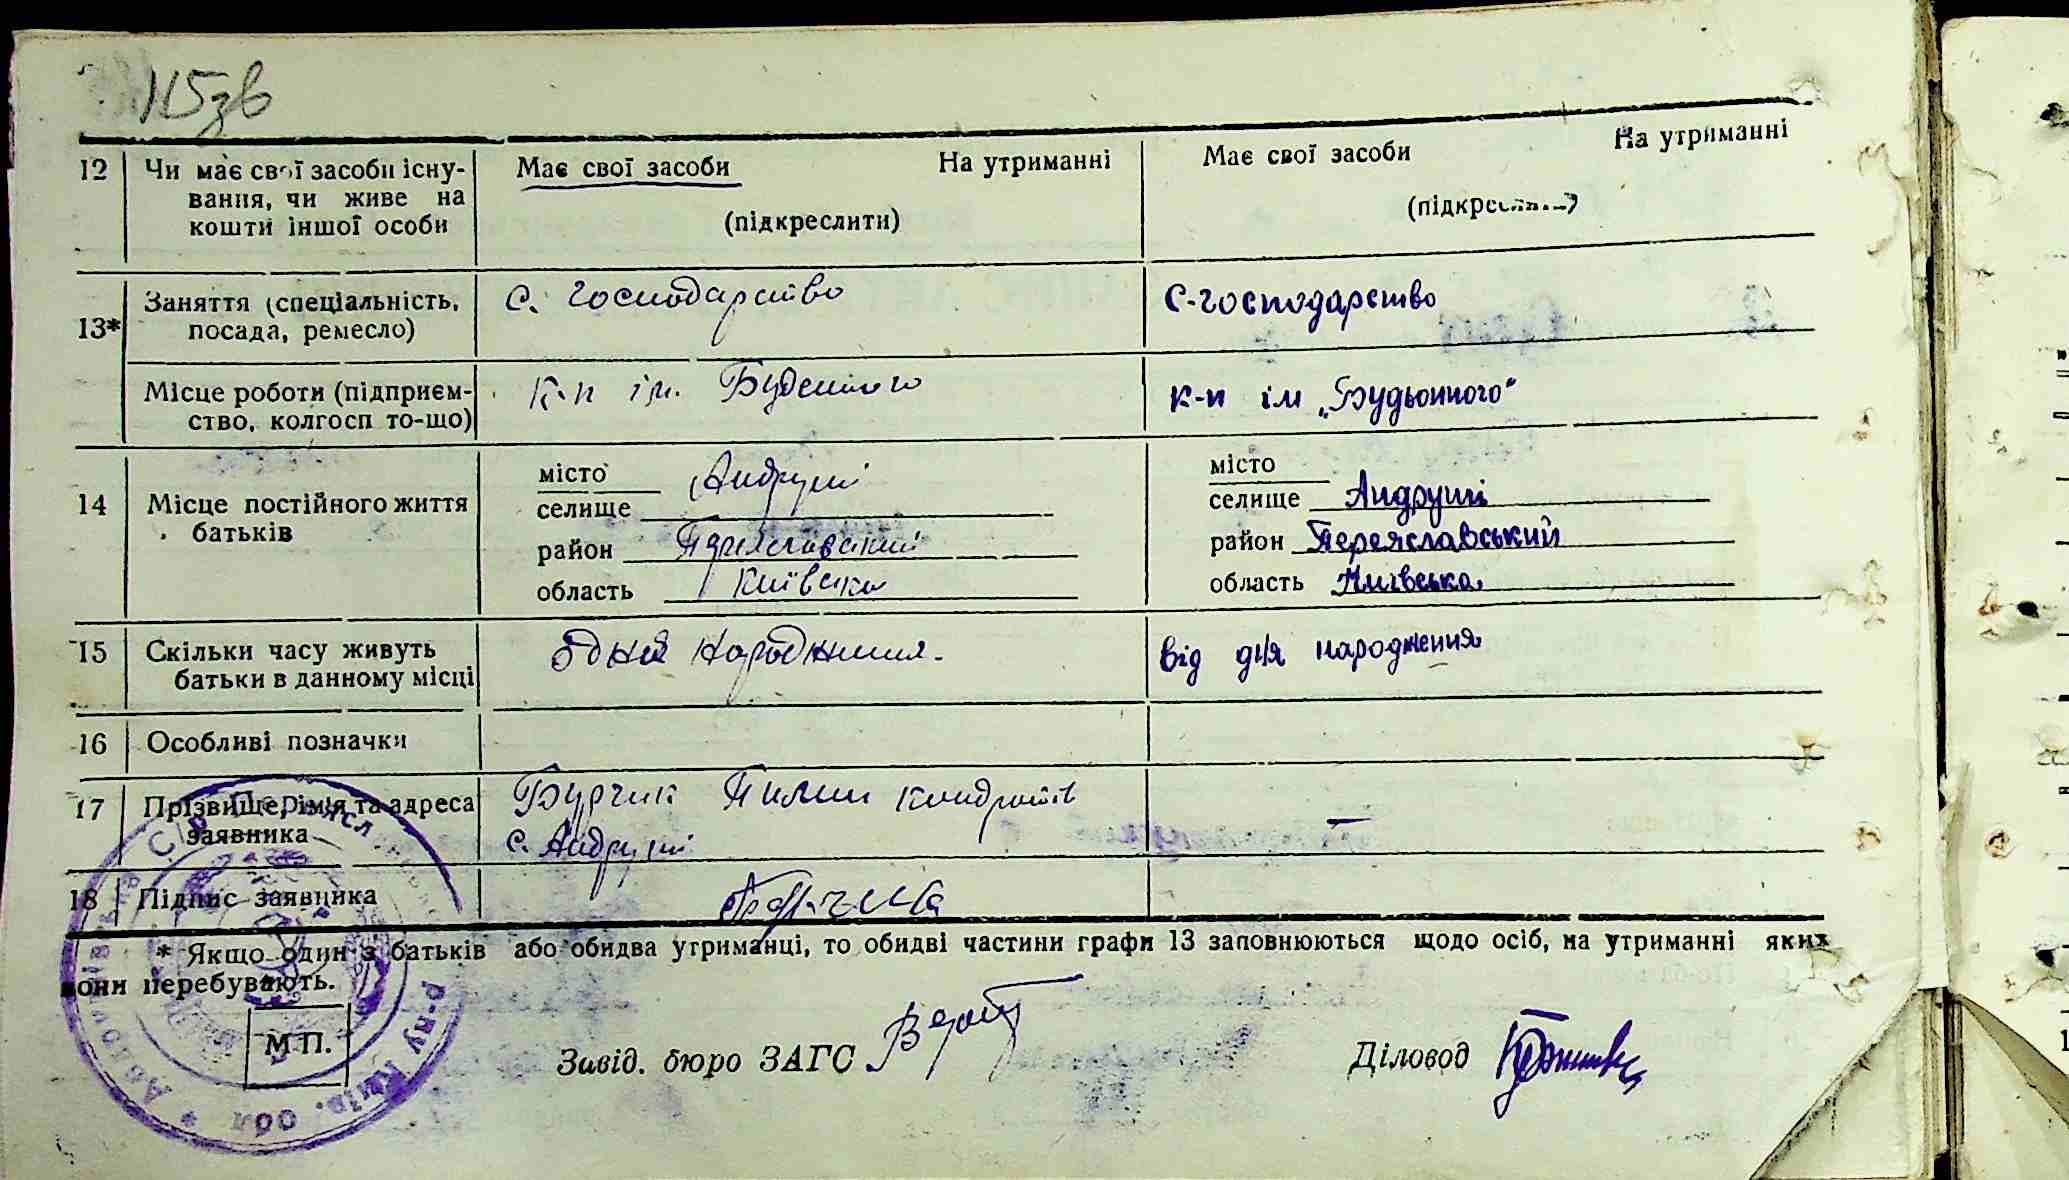 115зв
12 Чи має свої засоби існу-
вання, чи живе на
кошти іншої особи
Має свої засоби На утриманні
(підкреслити)
Має свої засоби На утриманні
(підкреслити)
13* Заняття (спеціальність,
посада, ремесло)
с. господарство
с-господарство
Місце роботи (підприєм-
ство, колгосп то-що)
к-п ім. Буденного
к-п ім „Будьонного"
14 Місце постійного життя
батьків
місто
селище Андруші
район Переяславський
область Київська
місто
селище Андруші
район Переяславський
область Київська
15 Скільки часу живуть
батьки в данному місці
з дня народження.
від дня народження
16 Особливі позначки
17 Прізвище, ім'я та адреса
заявника
Бурчик Пилип Кіндратів
с. Андруші
—
18 Підпис заявника
* Якщо один з батьків або обидва утриманці, то обидві частини графи 13 заповнюються щодо осіб, на утриманні яких
вони перебувають.
М.П.
Завід. бюро ЗАГС
Діловод
р-ну Київ. обл *